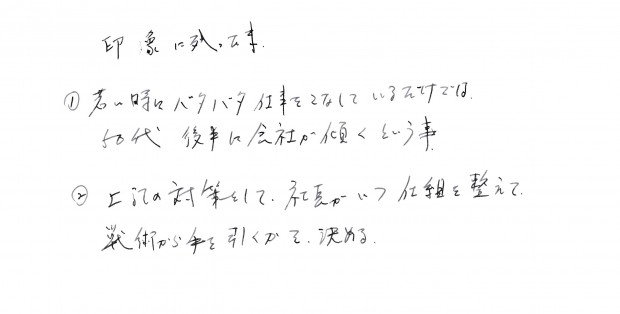 印象に残った事.
① 若い時にバタバタ仕事をこなしているだけでは.
50代 後半に会社が傾くという事
② 上記の対策として. 社長がいつ仕組を整えて.
戦術から手を引くかを. 決める.